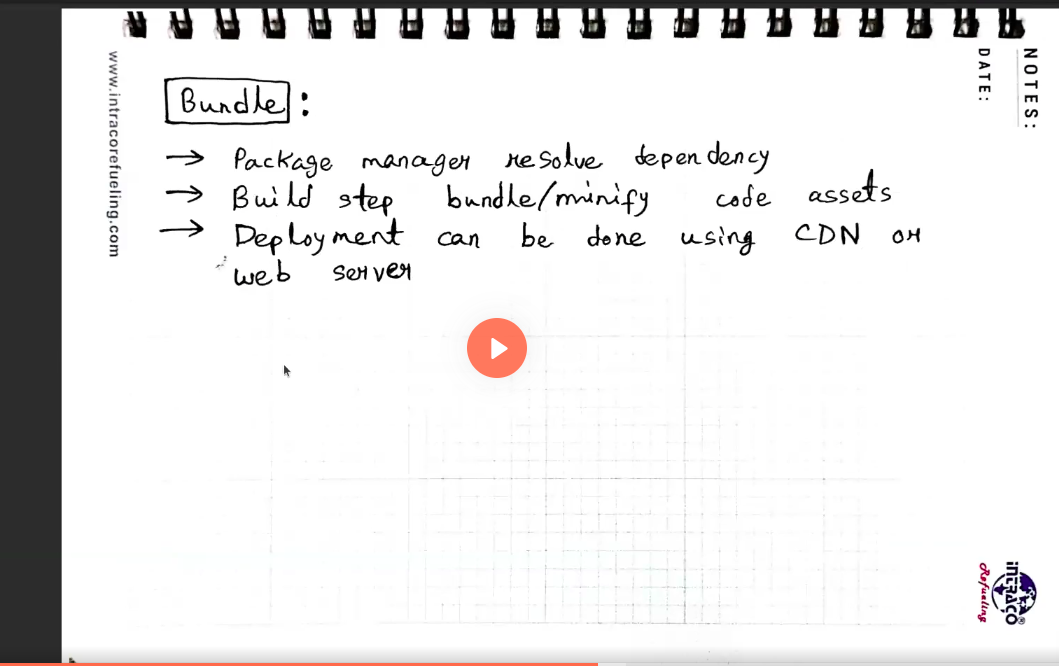 NOTES:
DATE:
www.intracorefueling.com
Bundle :
→ Package manager resolve dependency
→ Build step bundle/minify code assets
→ Deployment can be done using CDN or
web server
INTRACO®
Refueling